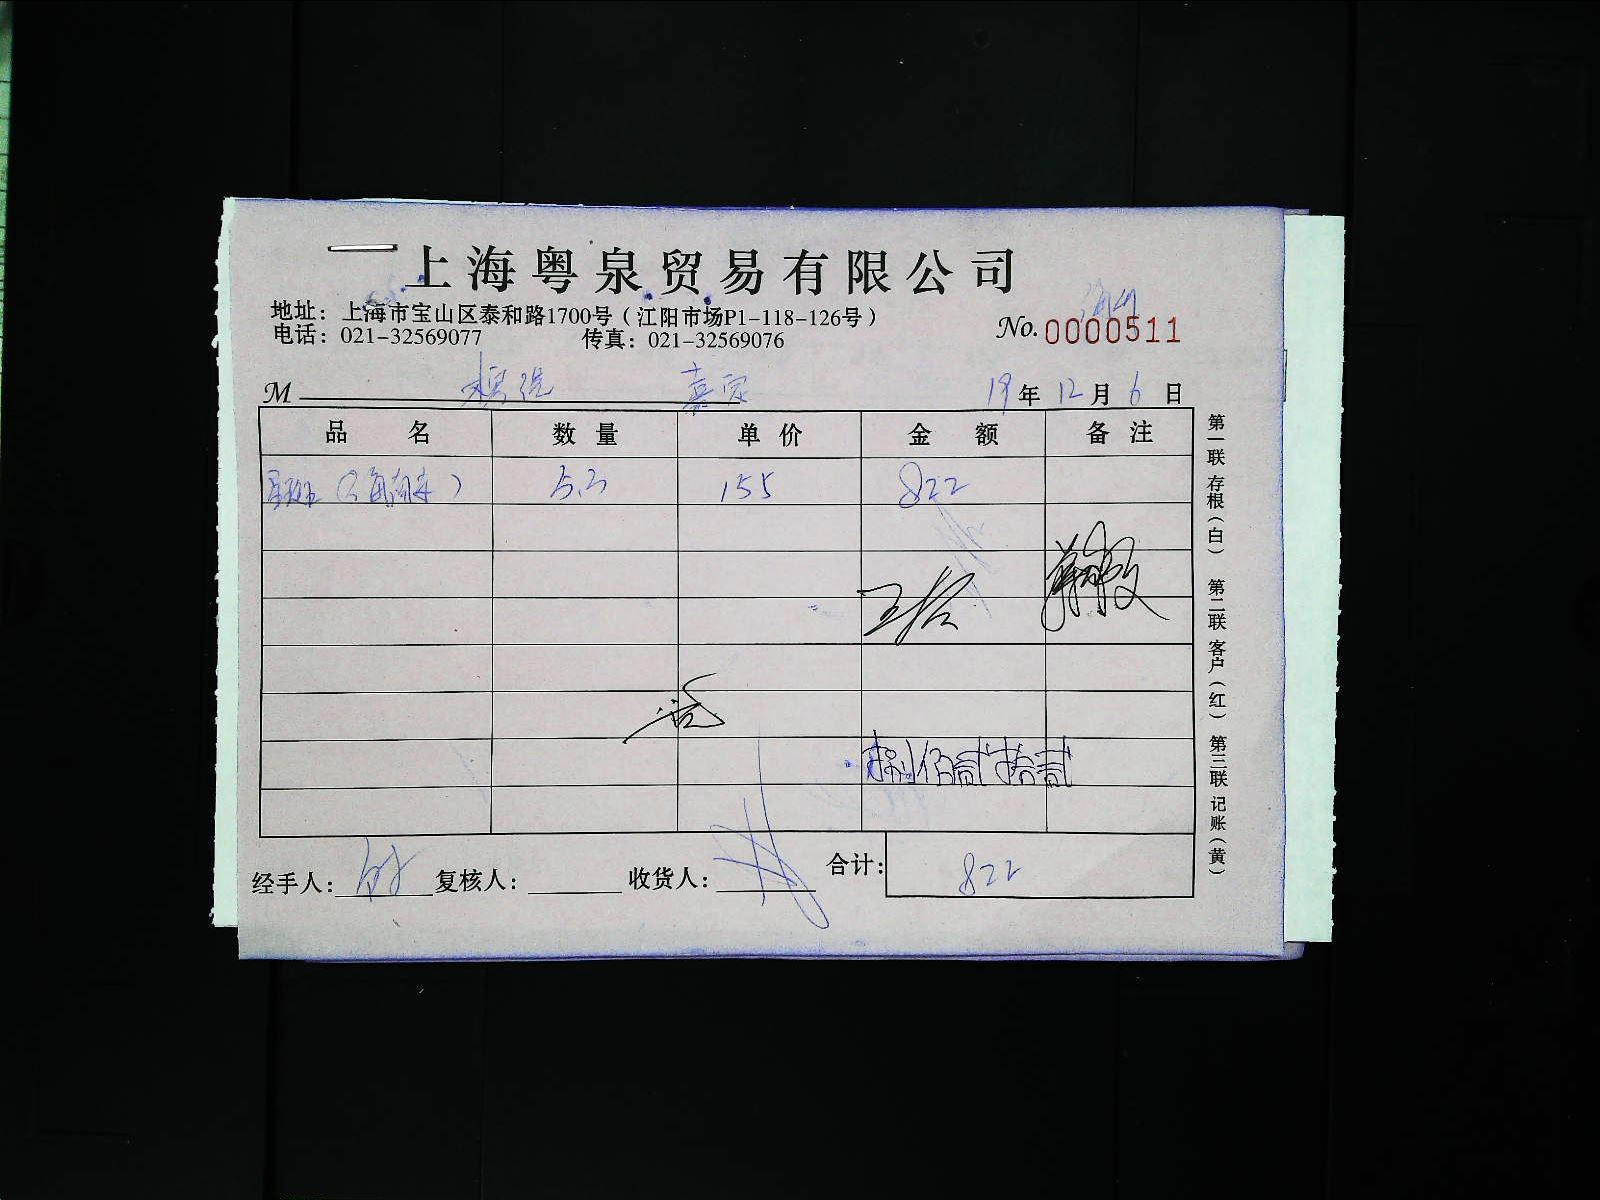 上海粤泉贸易有限公司
地址：上海市宝山区泰和路1700号（江阳市场P1-118-126号）
电话：021-32569077 传真：021-32569076
No. 0000511
M 嘉定 19年12月6日
品名 数量 单价 金额 备注
5.3 155 822
捌佰贰拾贰
经手人： 复核人： 收货人： 合计： 822
第一联 存根（白） 第二联 客户（红） 第三联 记账（黄）